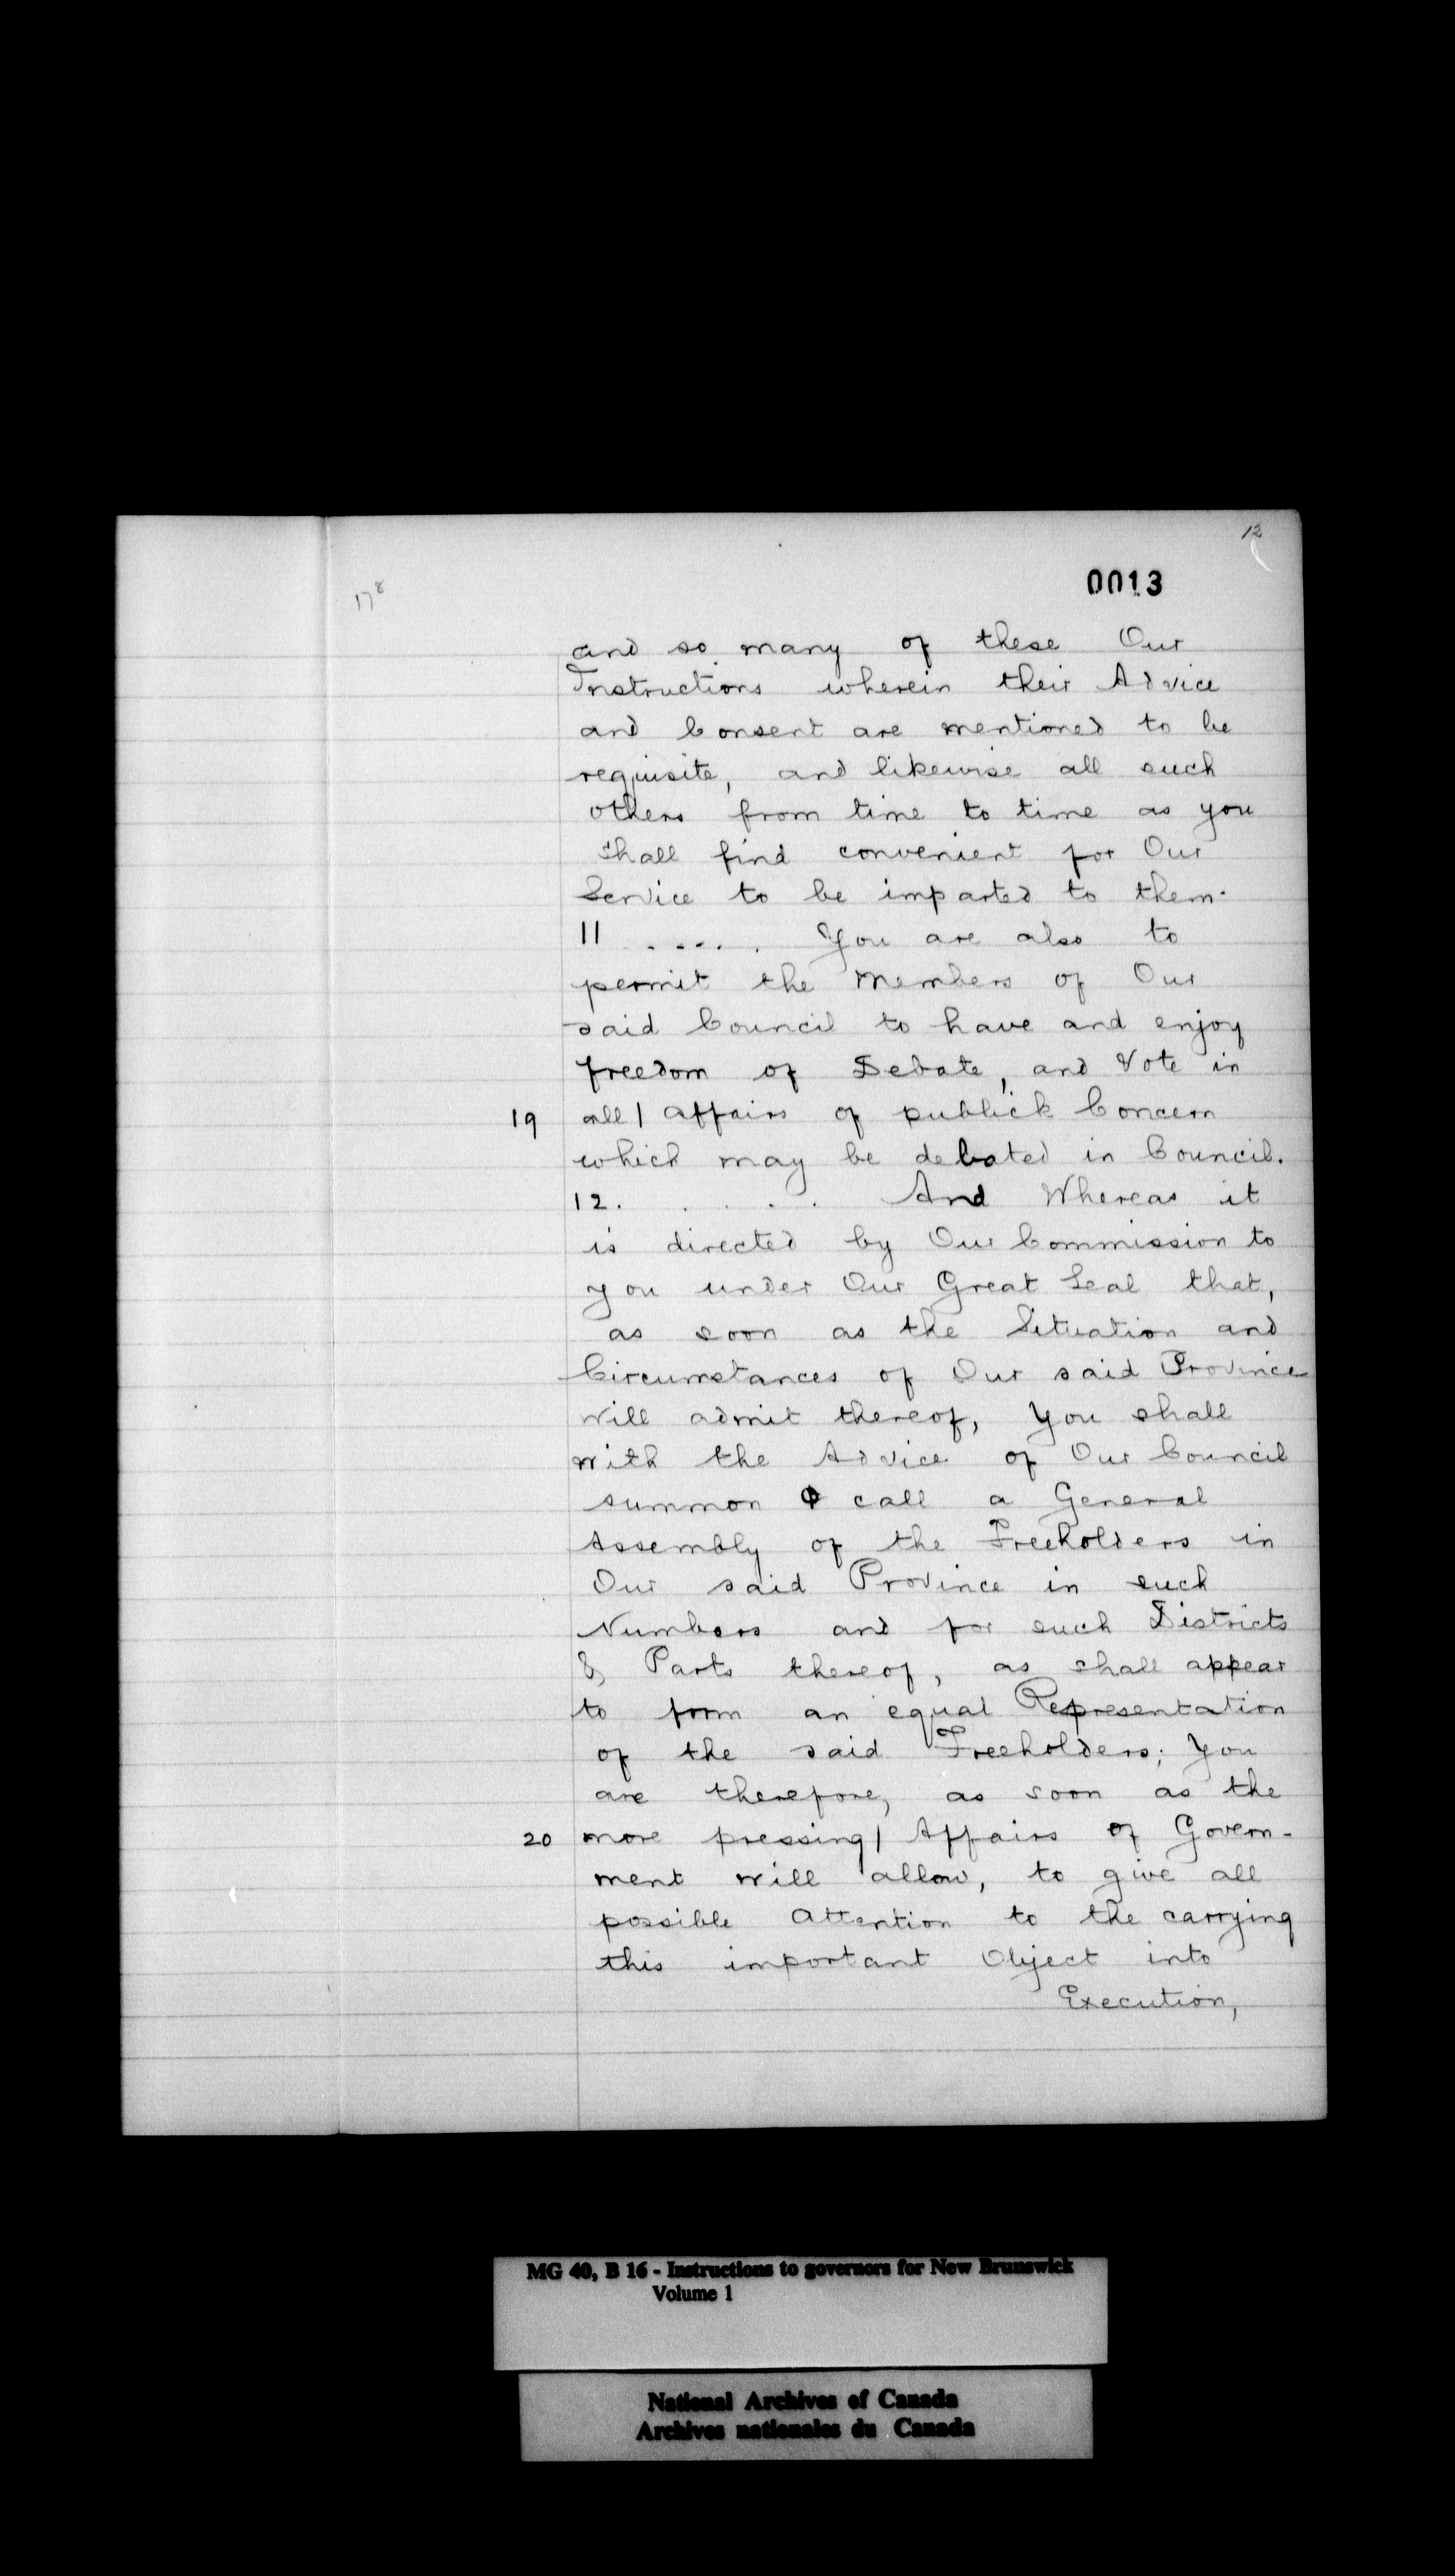 12
0013
178
and so many of these Our
Instructions wherein their Advice
and Consent are mentioned to be
requisite, and likewise all such
others from time to time as you
shall find convenient for Our
Service to be imparted to them.
11 ..... You are also to
permit the Members of Our
said Council to have and enjoy
freedom of Debate, and Vote in
19 all | affairs of publick Concern
which may be debated in Council.
12. . . . . And Whereas it
is directed by Our Commission to
you under Our Great Seal that,
as soon as the Situation and
Circumstances of Our said Province
will admit thereof, you shall
with the Advice of Our Council
summon & call a General
Assembly of the Freeholders in
Our said Province in such
Numbers and for such Districts
& Parts thereof, as shall appear
to form an equal Representation
of the said Freeholders; you
are therefore, as soon as the
20 more pressing | Affairs of Govern-
ment will allow, to give all
possible Attention to the carrying
this important Object into
Execution,
MG 40, B 16 - Instructions to governors for New Brunswick
Volume 1
National Archives of Canada
Archives nationales du Canada